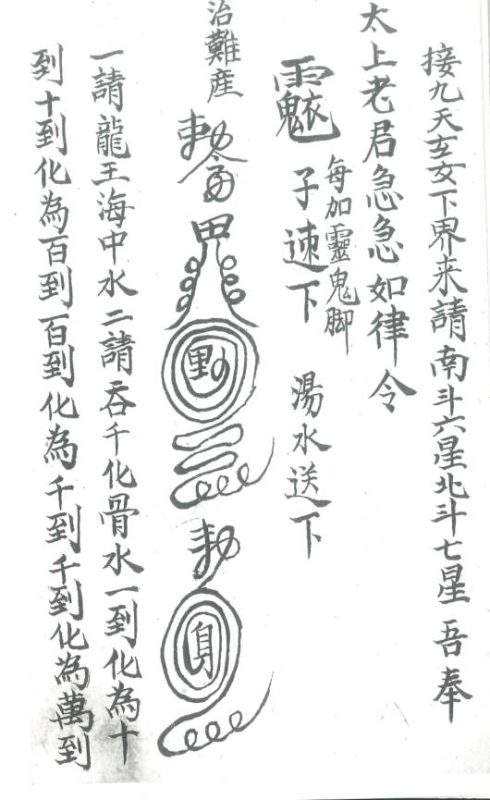 接九天玄女下界来請南斗六星北斗七星吾奉
太上老君急急如律令
每加靈鬼脚
子速下 湯水送下
治難產
勅令
勅
身
一請龍王海中水二請吞千化骨水一到化為十
到十到化為百到一百到化為千到千到化為萬到